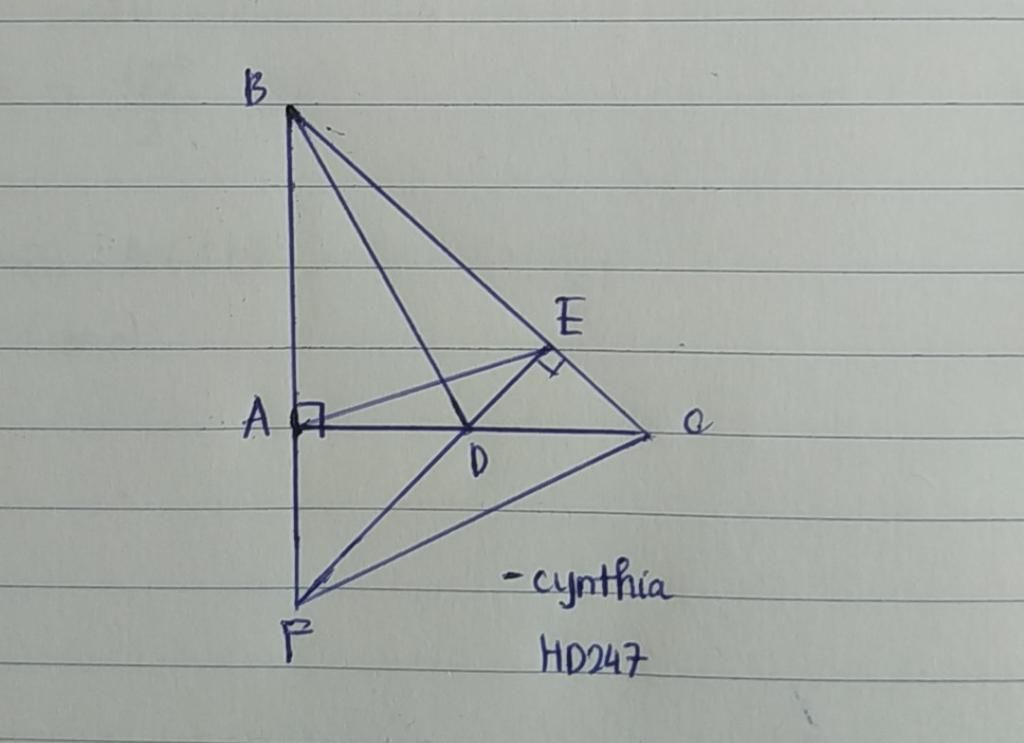 B
E
A
C
D
F
- cynthia
HD247